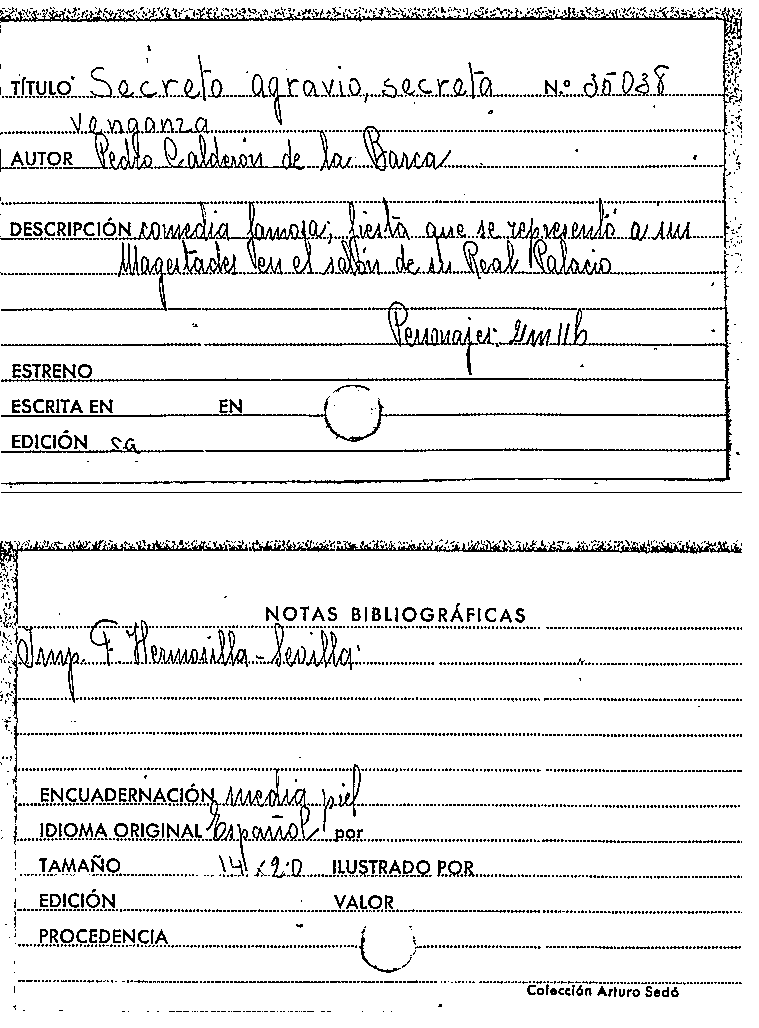 TÍTULO Secreto agravio, secreta N.º 35038
venganza
AUTOR Pedro Calderón de la Barca
DESCRIPCIÓN comedia famosa; fiesta que se representó a sus
Magestades en el salón de su Real Palacio
Personajes:
ESTRENO
ESCRITA EN EN
EDICIÓN sa
NOTAS BIBLIOGRÁFICAS
Imp. F. Hermosilla - Sevilla
ENCUADERNACIÓN media piel
IDIOMA ORIGINAL Español por
TAMAÑO 14 x 20 ILUSTRADO POR
EDICIÓN VALOR
PROCEDENCIA
Colección Arturo Sedó